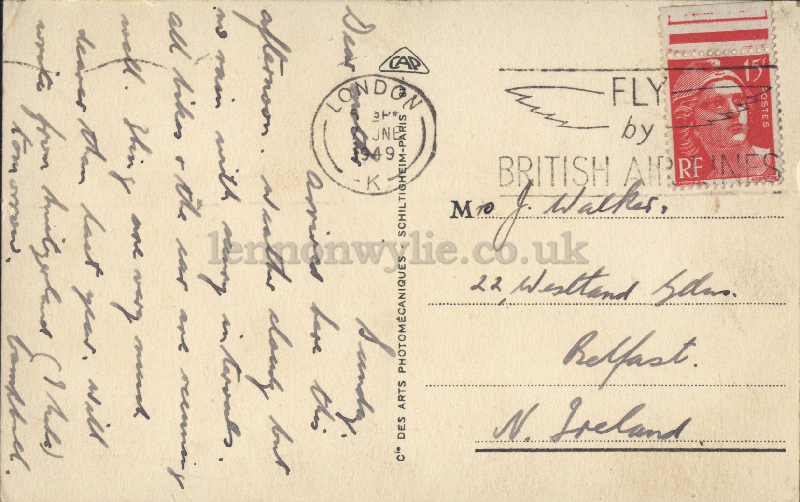 Sunday.
Dear Mother
Arrived here this
afternoon. Weather cloudy but
no rain with sunny intervals.
all bikes & the car are running
well. Things are very much
dearer than last year. Will
write from Switzerland (I hope)
tomorrow.
Campbell.
CAP
Cie DES ARTS PHOTOMÉCANIQUES - SCHILTIGHEIM-PARIS
LONDON
JNE
1949
K
FLY
by
BRITISH AIR LINES
15f
POSTES
RF
Mrs J. Walker,
22, Westland Gdns.
Belfast.
N. Ireland.
lennonwylie.co.uk